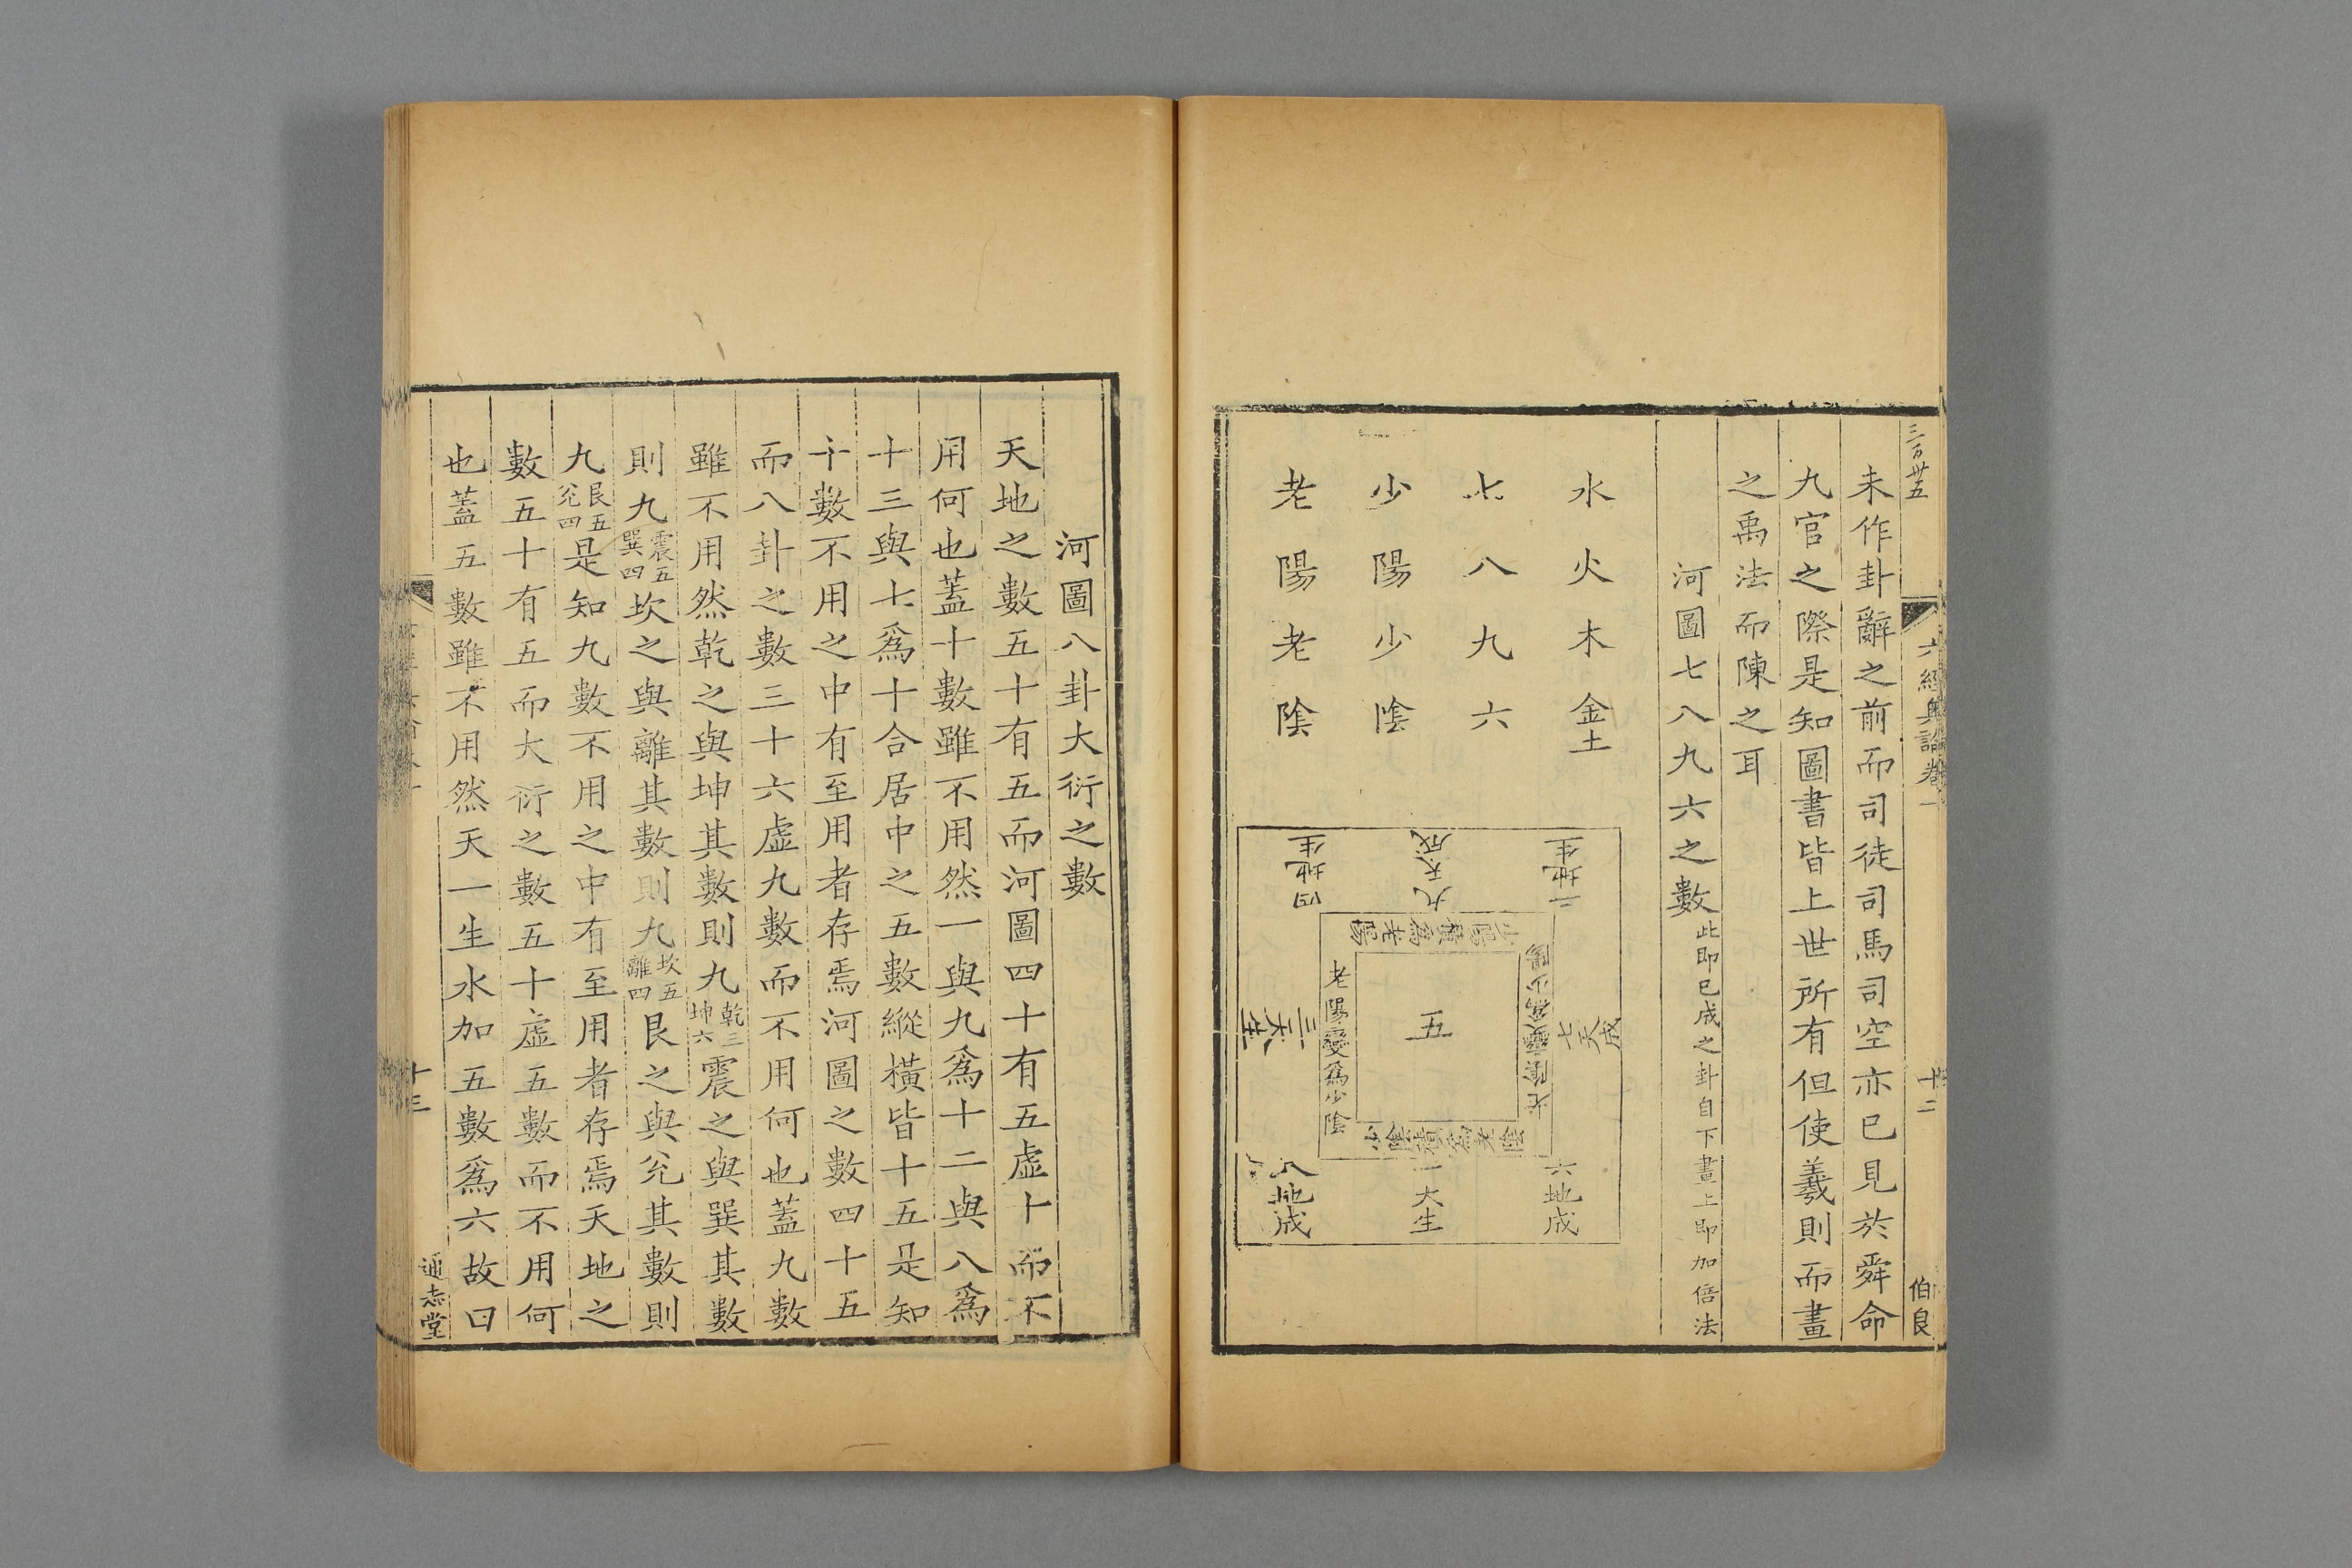 三百卅五
六經奧論卷一
十二
伯良
未作卦辭之前而司徒司馬司空亦已見於舜命
九官之際是知圖書皆上世所有但使羲則而畫
之禹法而陳之耳
河圖七八九六之數此即已成之卦自下畫上即加倍法
水火木金土
七八九六
少陽少陰
老陽老陰
二地生
九天成
四地生
少陽積爲老陽
七天成
老陰變爲少陽
五
老陽變爲少陰
三天生
少陰積爲老陰
六地成
一天生
八地成
河圖八卦大衍之數
天地之數五十有五而河圖四十有五虛十而不
用何也蓋十數雖不用然一與九爲十二與八爲
十三與七爲十合居中之五數縱橫皆十五是知
十數不用之中有至用者存焉河圖之數四十五
而八卦之數三十六虛九數而不用何也蓋九數
雖不用然乾之與坤其數則九乾三坤六震之與巽其數
則九震五巽四坎之與離其數則九坎五離四艮之與兊其數則
九艮五兊四是知九數不用之中有至用者存焉天地之
數五十有五而大衍之數五十虛五數而不用何
也蓋五數雖不用然天一生水加五數爲六故曰
十三
通志堂